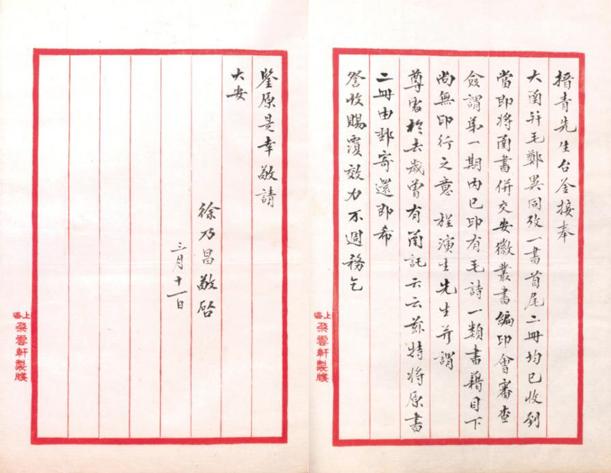 搢青先生台鉴接奉
大函并毛鄭異同攷一書首尾二冊均已收到
當即將函書併交安徽叢書編印會審查
僉謂第一期內已印有毛詩一類書籍目下
尚無印行之意程演生先生并謂
尊處於去歲曾有函託云云茲特將原書
二冊由郵寄還即希
詧收賜覆效力不週務乞
鑒原是幸敬請
大安
徐乃昌敬啓
三月十一日
上海
飛雲軒製牋
上海
飛雲軒製牋